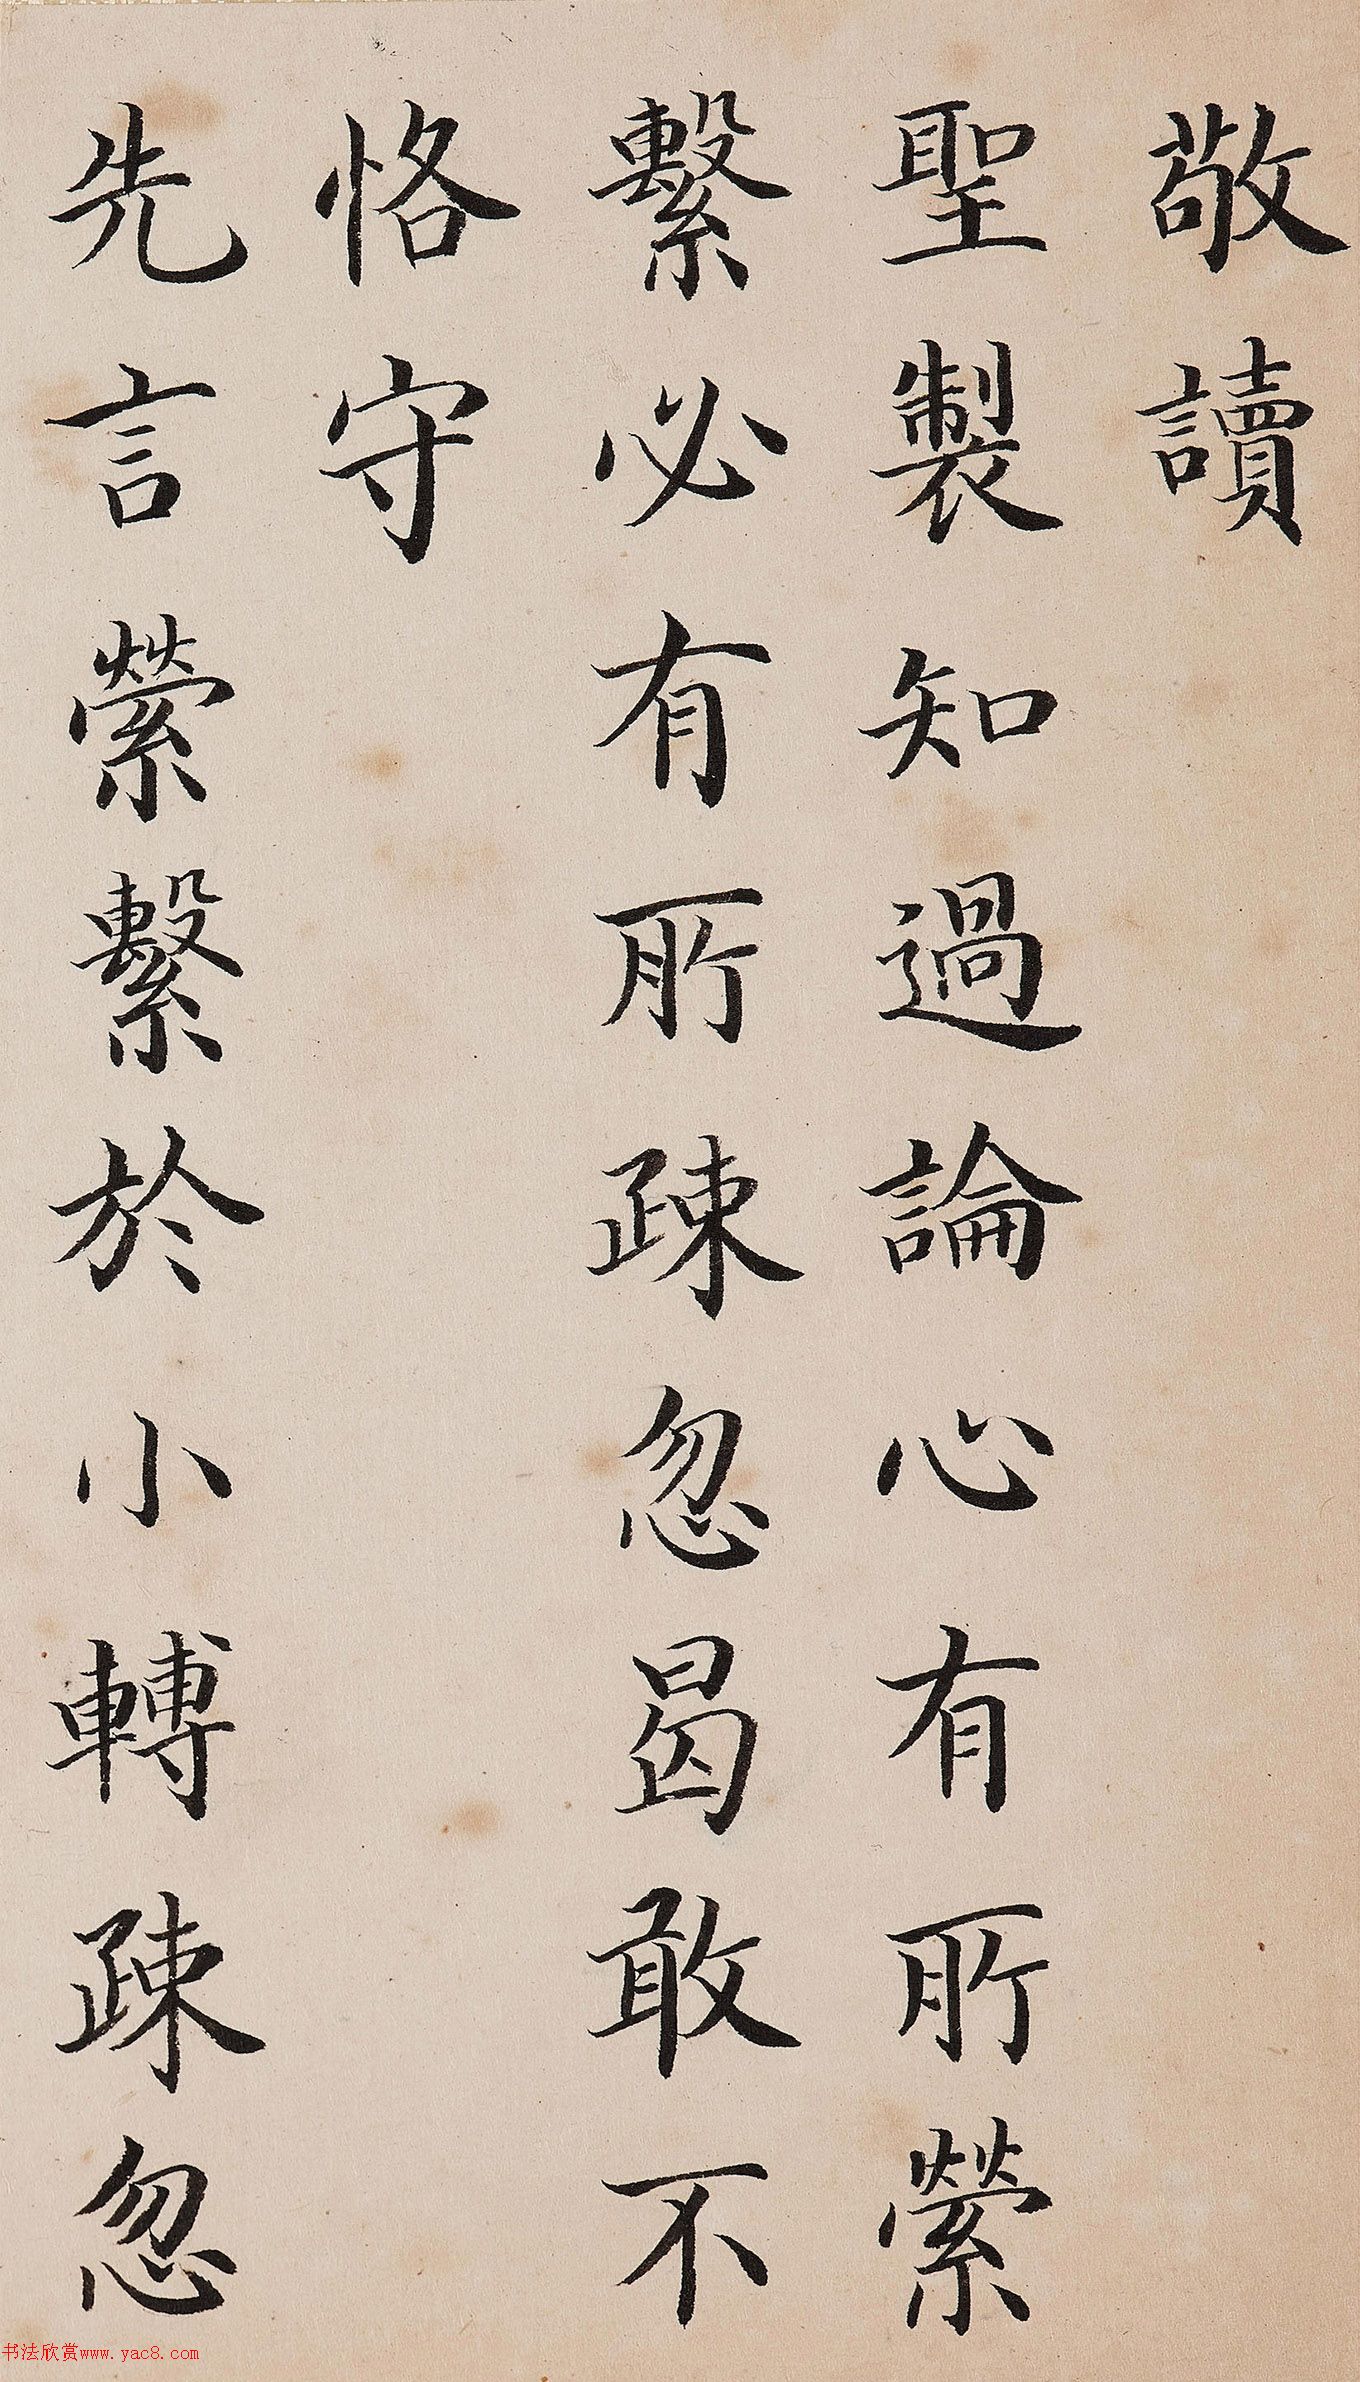 敬讀
聖製知過論心有所縈
繫必有所疎忽曷敢不
恪守
先言縈繫於小轉疎忽
书法欣赏www.yac8.com